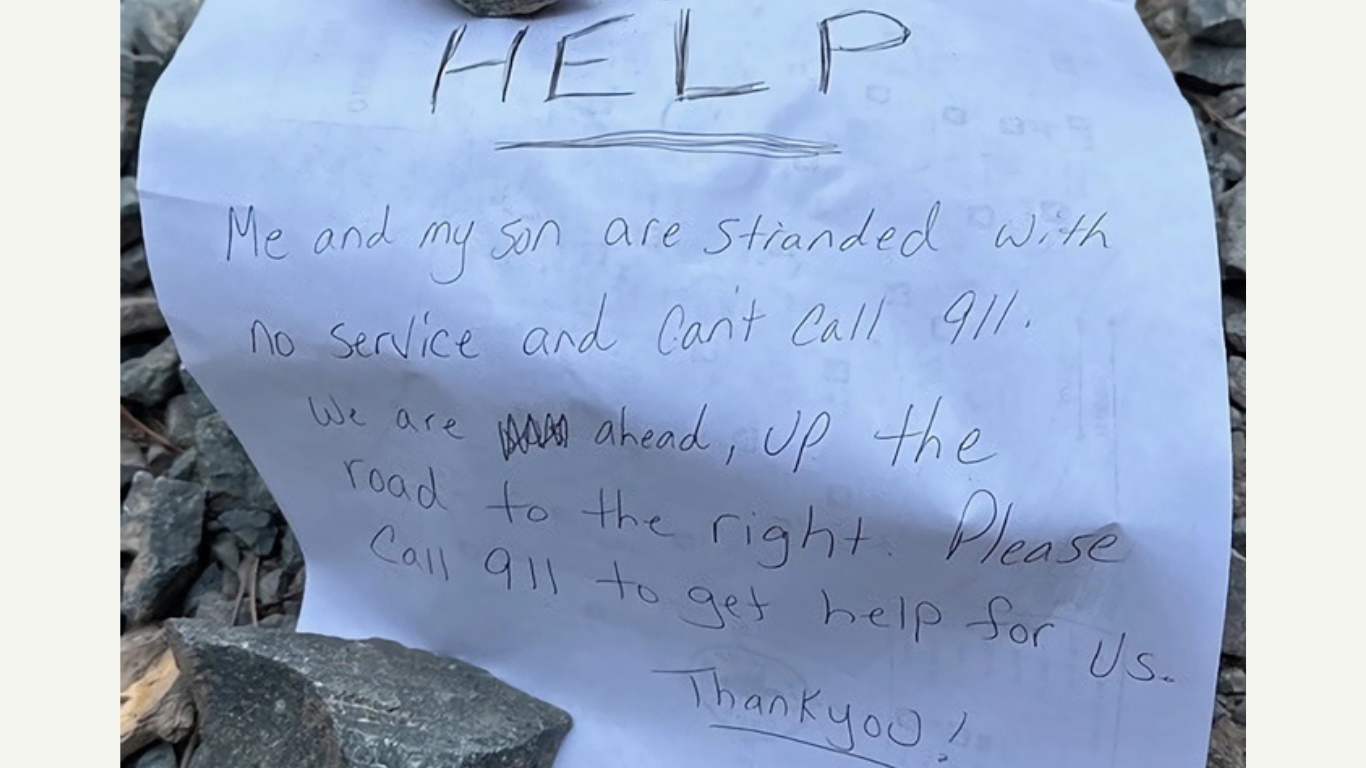 HELP
Me and my son are stranded with
no service and can't call 911.
We are ahead, up the
road to the right. Please
Call 911 to get help for
us.
Thankyou!